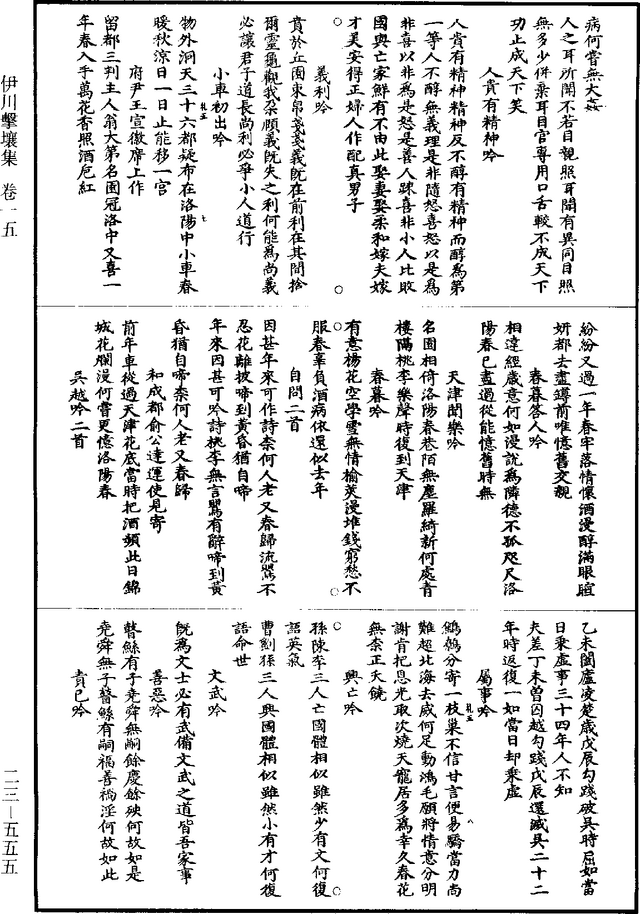 病何嘗無大姦
人之耳所聞不若目親照耳聞有異同目照
無多少併棄耳目官專用口舌較不成天下
功止成天下笑
人貴有精神吟
人貴有精神精神反不醇有精神而醇為第
一等人不醇無義理是非隨怒喜怒以是為
非喜以非為是怒是善人踈喜非小人比敗
國與亡家鮮有不由此娶妻娶柔和嫁夫嫁
才美安得正婦人作配真男子
義利吟
賁於丘園束帛戔戔義既在前利在其間捨
爾靈龜觀我朵頤義既失之利何能為尚義
必讓君子道長尚利必爭小人道行
小車初出吟
物外洞天三十六都疑布在洛陽中小車春
暖秋涼日一日止能移一宮
府尹王宣徽席上作
留都三判主人翁大第名園冠洛中又喜一
年春入手萬花香照酒卮紅
紛紛又過一年春牢落情懷酒漫醇滿眼暄
妍都去盡罇前唯憶舊交親
春暮答人吟
相違經歲意何如漫說為隣德不孤咫尺洛
陽春已盡過從能憶舊時無
天津聞樂吟
名園相倚洛陽春巷陌無塵羅綺新何處青
樓隔桃李樂聲時復到天津
春暮吟
有意楊花空學雪無情榆莢漫堆錢窮愁不
服春辜負酒病依還似去年
自問二首
因甚年來可作詩柰何人老又春歸流鶯不
忍花離披啼到黃昏猶自啼
年來因甚可吟詩桃李無言鶯有辭啼到黃
昏猶自啼奈何人老又春歸
和成都俞公達運使見寄
前年車從過天津花底當時把酒頻此日錦
城花爛漫何嘗更憶洛陽春
吳越吟二首
乙未闔廬凌楚歲戊辰勾踐破吳時屈如當
日乘虛事三十四年人不知
夫差丁未曾囚越勾踐戊辰還滅吳二十二
年時返復一如當日却乘虛
屬事吟
鷦鷯分寄一枝巢不信甘言便易驕當力尚
難超北海去威何足動鴻毛願將情意分明
謝肯把恩光取次燒天寵居多為幸久春花
無柰正夭饒
興亡吟
孫陳李三人亡國體相似雖然少有文何復
語英氣
曹劉孫三人興國體相似雖然小有才何復
語命世
文武吟
既為文士必有武備文武之道皆吾家事
善惡吟
瞽鯀有子堯舜無嗣餘慶餘殃何故如是
堯舜無子瞽鯀有嗣福善禍淫何故如此
責已吟
伊川擊壤集 卷一五
二三－五五五